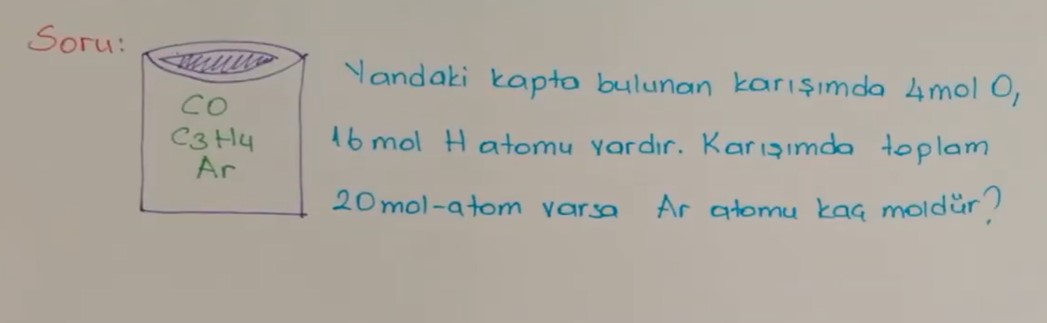 Soru:
CO
C3H4
Ar
Yandaki kapta bulunan karışımda 4mol O,
16 mol H atomu vardır. Karışımda toplam
20 mol-atom varsa Ar atomu kaç moldür?